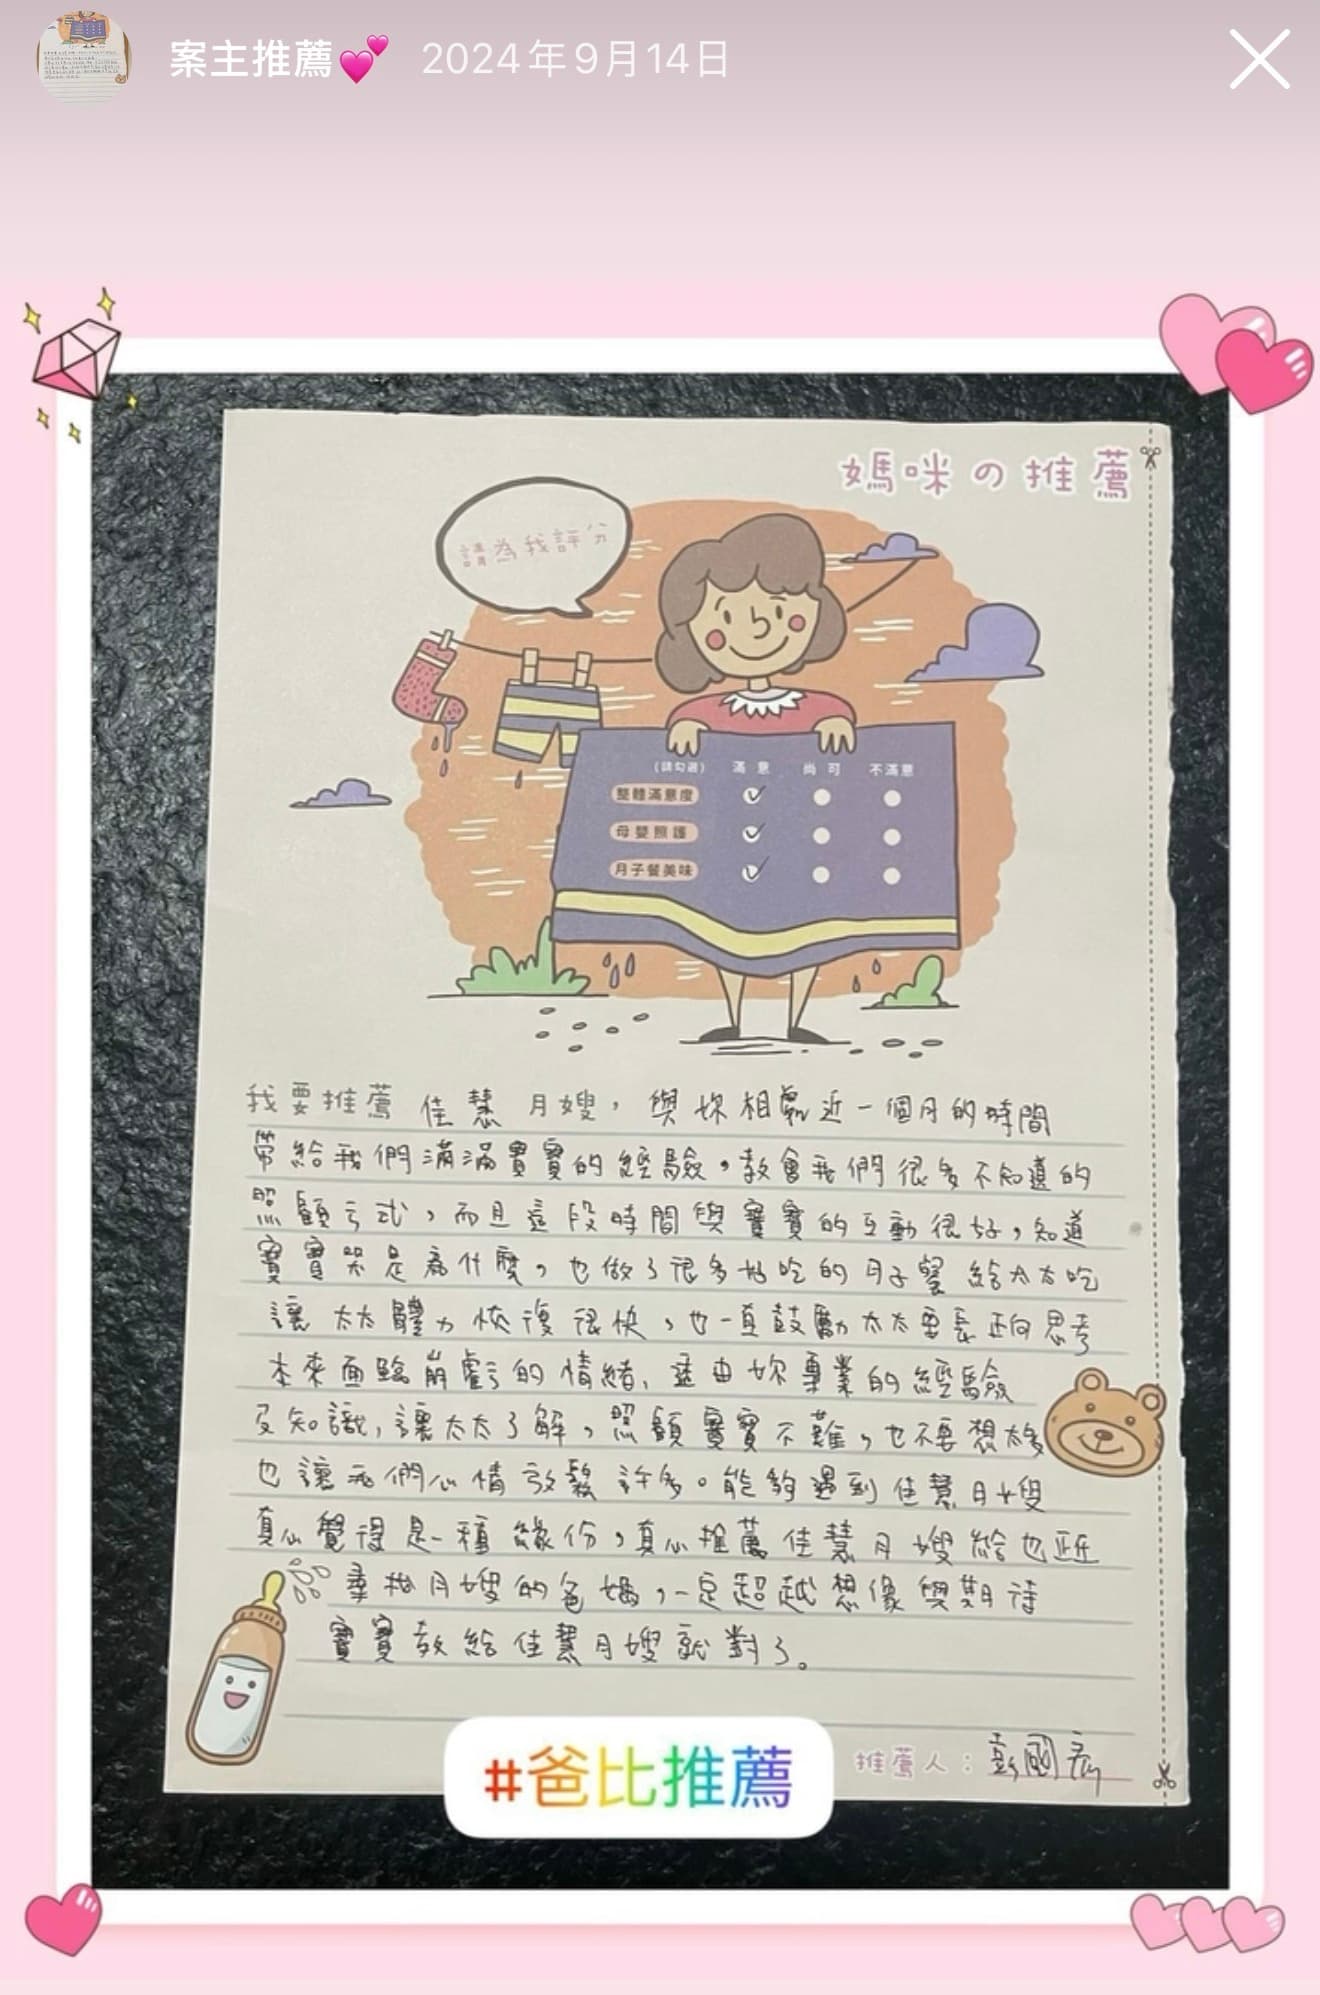 案主推薦💕 2024年9月14日
媽咪の推薦
請為我評分
(請勾選) 滿意 尚可 不滿意
整體滿意度
母嬰照護
月子餐美味
我要推薦 佳慧 月嫂，與妳相處近一個月的時間
帶給我們滿滿寶寶的經驗，教會我們很多不知道的
照顧方式，而且這段時間與寶寶的互動很好，知道
寶寶哭是為什麼，也做了很多好吃的月子餐 給太太吃
讓太太體力恢復很快，也一直鼓勵太太要長正向思考
本來面臨崩虧的情緒、透由妳專業的經驗
及知識，讓太太了解，照顧寶寶不難，也不要想太多
也讓我們心情放鬆許多。能夠遇到佳慧月嫂
真心覺得是一種緣份，真心推薦佳慧月嫂給也正在
尋找月嫂的爸媽，一定超越想像與期待
寶寶教給佳慧月嫂就對了。
#爸比推薦
推薦人：彭國